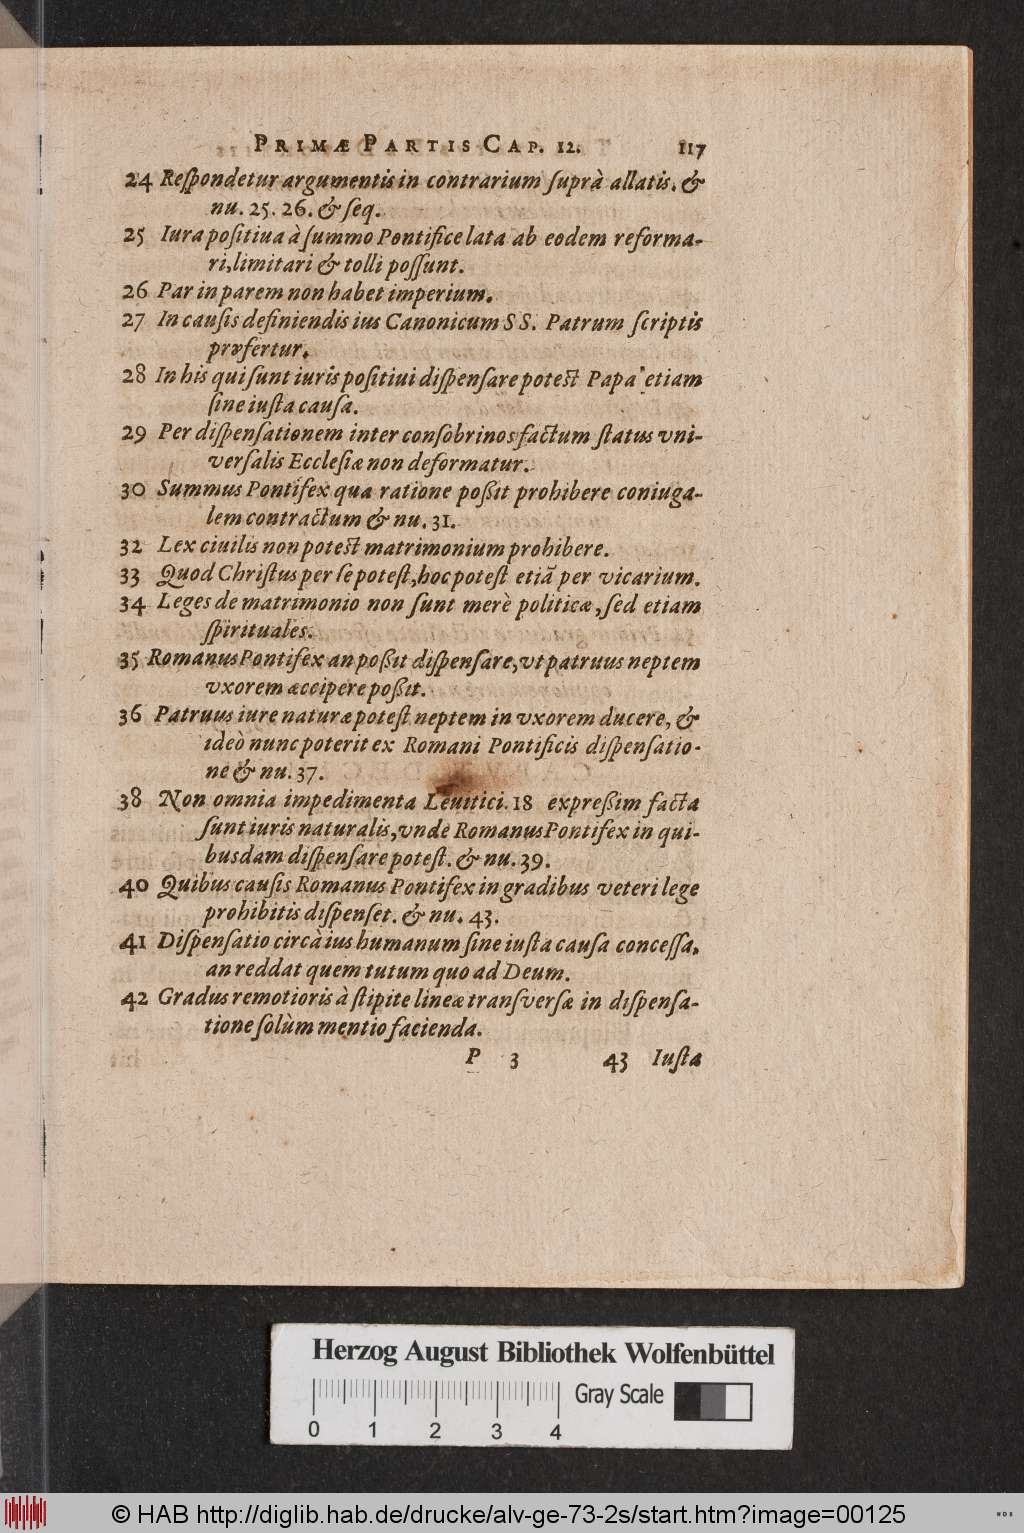 PRIMÆ PARTIS CAP. 12. 117
24 Reſpondetur argumentis in contrarium ſuprà allatis. &
nu. 25. 26. & ſeq.
25 Iura poſitiua à ſummo Pontifice lata ab eodem reforma-
ri, limitari & tolli poſſunt.
26 Par in parem non habet imperium.
27 In cauſis definiendis ius Canonicum SS. Patrum ſcriptis
præfertur.
28 In his qui ſunt iuris poſitiui diſpenſare poteſt Papa etiam
ſine iuſta cauſa.
29 Per diſpenſationem inter conſobrinos factum ſtatus vni-
verſalis Eccleſiæ non deformatur.
30 Summus Pontifex qua ratione poßit prohibere coniuga-
lem contractum & nu. 31.
32 Lex ciuilis non poteſt matrimonium prohibere.
33 Quod Chriſtus per ſe poteſt, hoc poteſt etiã per vicarium.
34 Leges de matrimonio non ſunt merè politicæ, ſed etiam
ſpirituales.
35 Romanus Pontifex an poßit diſpenſare, vt patruus neptem
vxorem accipere poßit.
36 Patruus iure naturæ poteſt neptem in vxorem ducere, &
ideò nunc poterit ex Romani Pontificis diſpenſatio-
ne & nu. 37.
38 Non omnia impedimenta Leuitici. 18 expreßim facta
ſunt iuris naturalis, vnde Romanus Pontifex in qui-
busdam diſpenſare poteſt. & nu. 39.
40 Quibus cauſis Romanus Pontifex in gradibus veteri lege
prohibitis diſpenſet. & nu. 43.
41 Diſpenſatio circà ius humanum ſine iuſta cauſa conceſſa,
an reddat quem tutum quo ad Deum.
42 Gradus remotioris à ſtipite lineæ tranſverſæ in diſpenſa-
tione ſolùm mentio facienda.
P 3 43 Iuſta
Herzog August Bibliothek Wolfenbüttel
Gray Scale
0 1 2 3 4
© HAB http://diglib.hab.de/drucke/alv-ge-73-2s/start.htm?image=00125